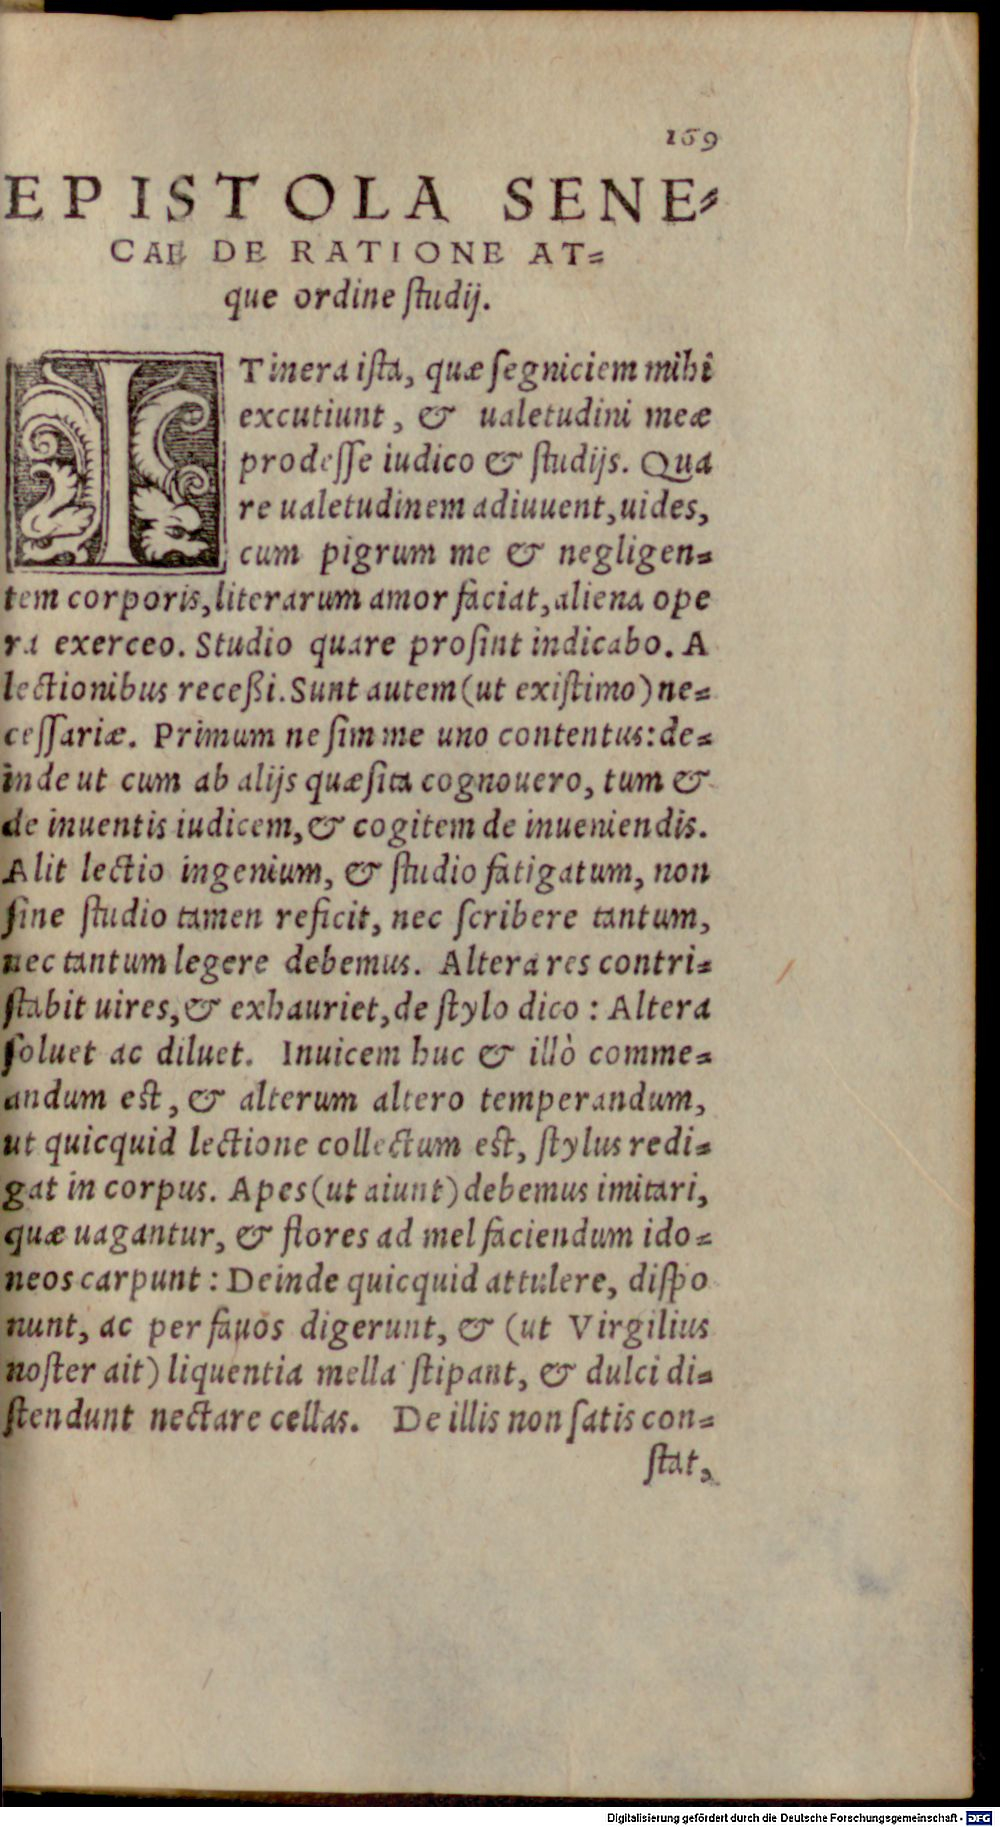 169
EPISTOLA SENE⸗
CAE DE RATIONE AT⸗
que ordine ſtudij.
ITinera iſta, quæ ſegniciem mihi
excutiunt, & ualetudini meæ
prodeſſe iudico & ſtudijs. Qua
re ualetudinem adiuuent, uides,
cum pigrum me & negligen⸗
tem corporis, literarum amor faciat, aliena ope
ra exerceo. Studio quare proſint indicabo. A
lectionibus receßi. Sunt autem (ut exiſtimo) ne⸗
ceſſariæ. Primum ne ſim me uno contentus: de⸗
inde ut cum ab alijs quæſita cognouero, tum &
de inuentis iudicem, & cogitem de inueniendis.
Alit lectio ingenium, & ſtudio fatigatum, non
ſine ſtudio tamen reficit, nec ſcribere tantum,
nec tantum legere debemus. Altera res contri⸗
ſtabit uires, & exhauriet, de ſtylo dico: Altera
ſoluet ac diluet. Inuicem huc & illò comme⸗
andum est, & alterum altero temperandum,
ut quicquid lectione collectum est, ſtylus redi⸗
gat in corpus. Apes (ut aiunt) debemus imitari,
quæ uagantur, & flores ad mel faciendum ido⸗
neos carpunt: Deinde quicquid attulere, diſpo
nunt, ac per fauos digerunt, & (ut Virgilius
noſter ait) liquentia mella ſtipant, & dulci di⸗
ſtendunt nectare cellas. De illis non ſatis con⸗
ſtat,
Digitalisierung gefördert durch die Deutsche Forschungsgemeinschaft - DFG